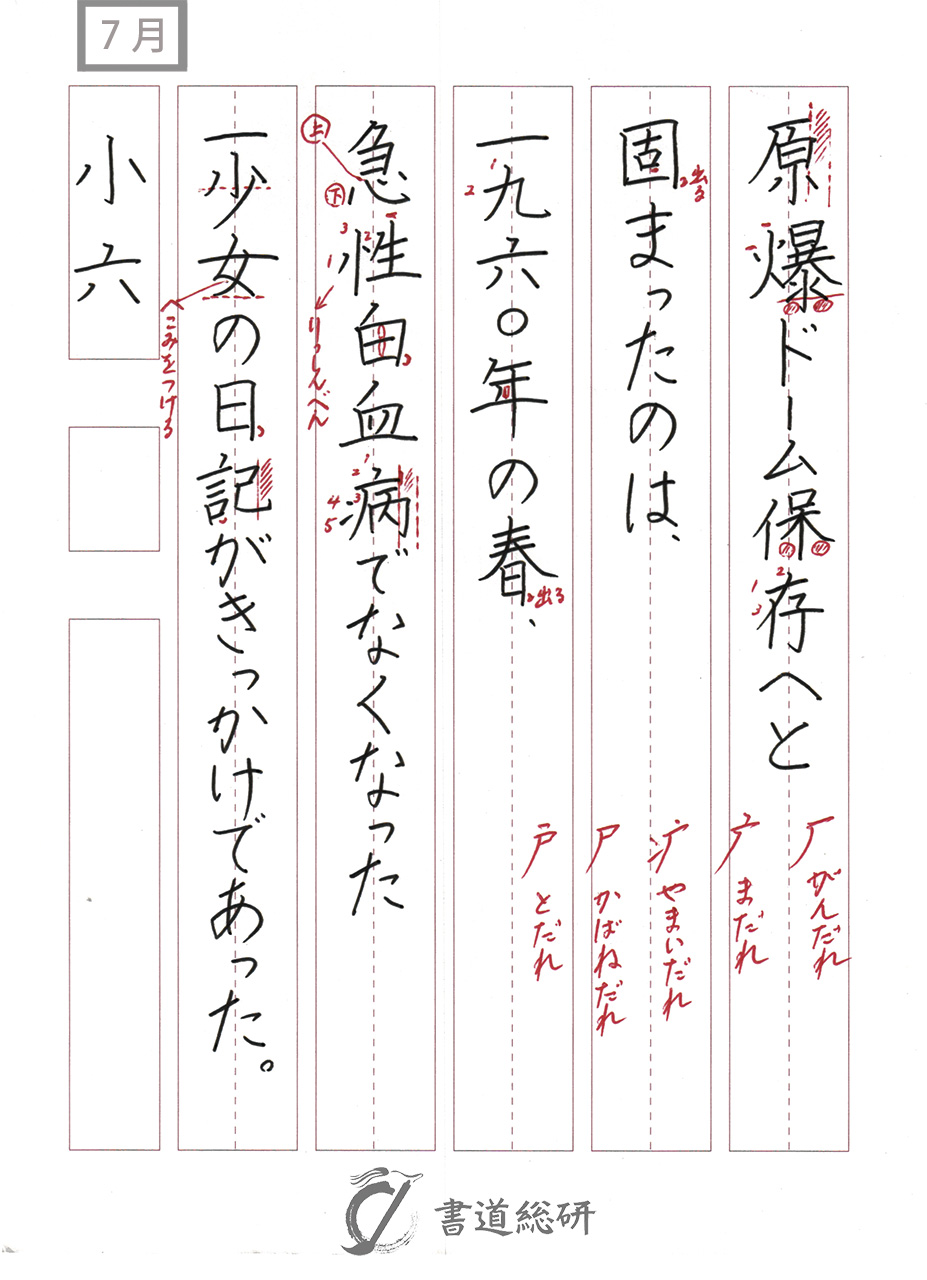 7月
原爆ドーム保存へと
固まったのは、
一九六〇年の春、
急性白血病でなくなった
一少女の日記がきっかけであった。
小六
出る
出る
上
下
りっしんべん
へこみをつける
厂 がんだれ
广 まだれ
疒 やまいだれ
尸 かばねだれ
戸 とだれ
1
2
3
2
1
1
2
3
1
2
3
4
5
書道総研